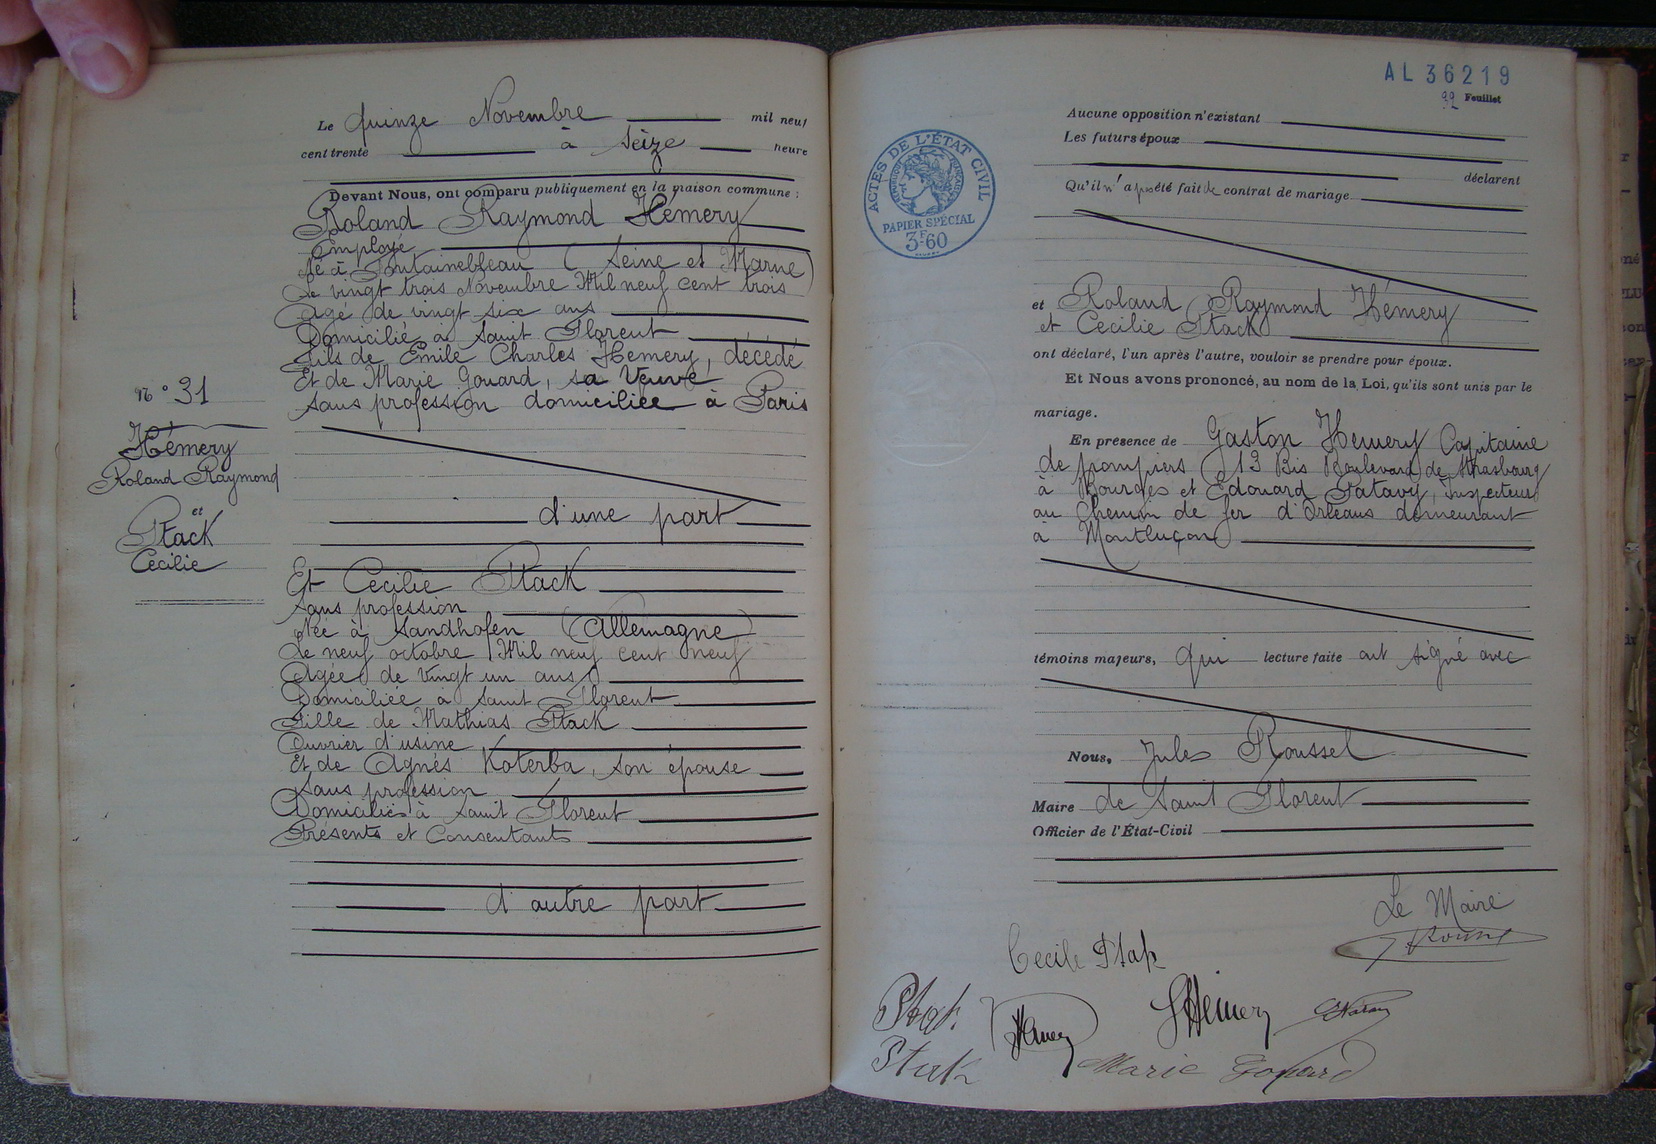 Le quinze Novembre mil neuf
cent trente à seize heure
Devant Nous, ont comparu publiquement en la maison commune :
Roland Raymond Hémery
Employé
Né à Fontainebleau (Seine et Marne)
Le vingt trois Novembre Mil neuf cent trois
Agé de vingt six ans
Domicilié à Saint Florent
Fils de Emile Charles Hemery, décédé
Et de Marie Gouard, sa Veuve
sans profession domiciliée à Paris
d'une part
N° 31
Hémery
Roland Raymond
et
Ptack
Cécilie
Et Cécilie Ptack
Sans profession
Née à Sandhofen (Allemagne)
Le neuf octobre Mil neuf cent neuf
Agée de vingt un ans
Domiciliée à Saint Florent
Fille de Mathias Ptack
Ouvrier d'usine
Et de Agnès Koterba, son épouse
Sans profession
Domiciliés à Saint Florent
Présents et Consentants
d'autre part
AL 36219
92 Feuillet
ACTES DE L'ÉTAT CIVIL
RÉPUBLIQUE FRANÇAISE
PAPIER SPÉCIAL
3F60
Aucune opposition n'existant
Les futurs époux
déclarent
Qu'il n'a pas été fait de contrat de mariage
et Roland Raymond Hémery
et Cécilie Ptack
ont déclaré, l'un après l'autre, vouloir se prendre pour époux.
Et Nous avons prononcé, au nom de la Loi, qu'ils sont unis par le
mariage.
En presence de Gaston Hemery Capitaine
de pompiers 13 Bis Boulevard de Strasbourg
à Bourges et Edouard Patavy, Inspecteur
au Chemin de fer d'Orléans demeurant
à Montluçon
témoins majeurs, qui lecture faite ont signé avec
Nous, Jules Roussel
Maire de Saint Florent
Officier de l'État-Civil
Le Maire
Cecile Ptak
Ptak
Hemery
Ptak
Marie Gouard